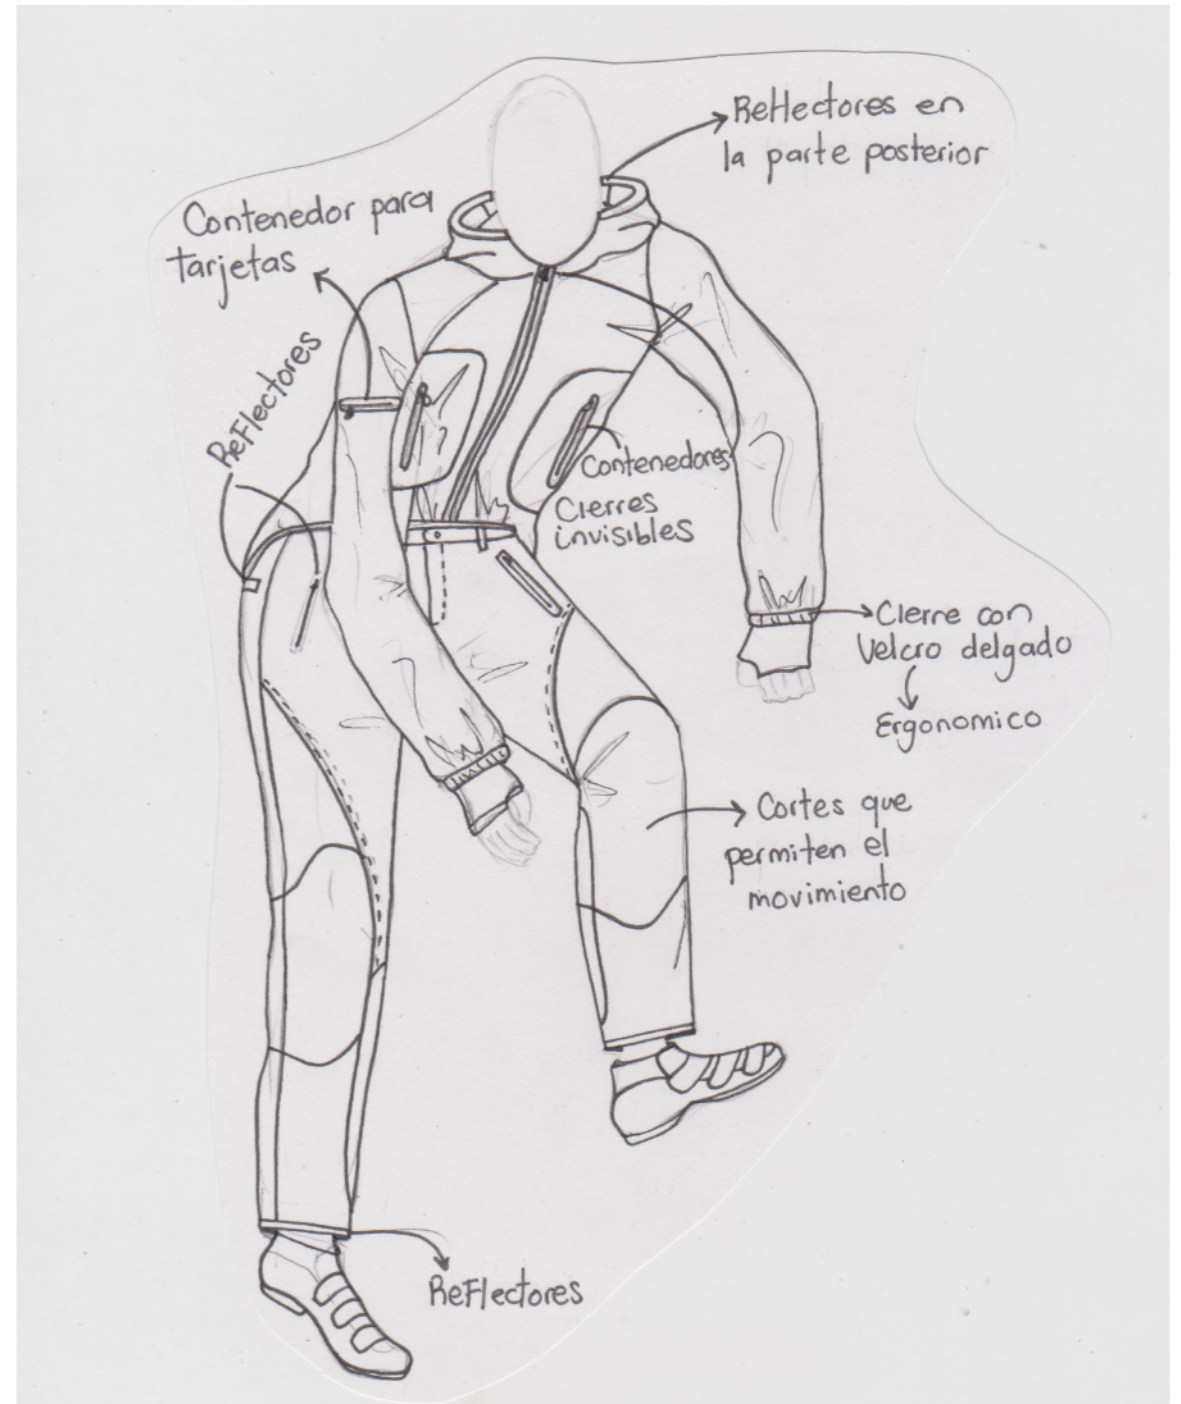 Reflectores en
la parte posterior
Contenedor para
tarjetas
Reflectores
Contenedores
Cierres
invisibles
Cierre con
Velcro delgado
Ergonomico
Cortes que
permiten el
movimiento
Reflectores